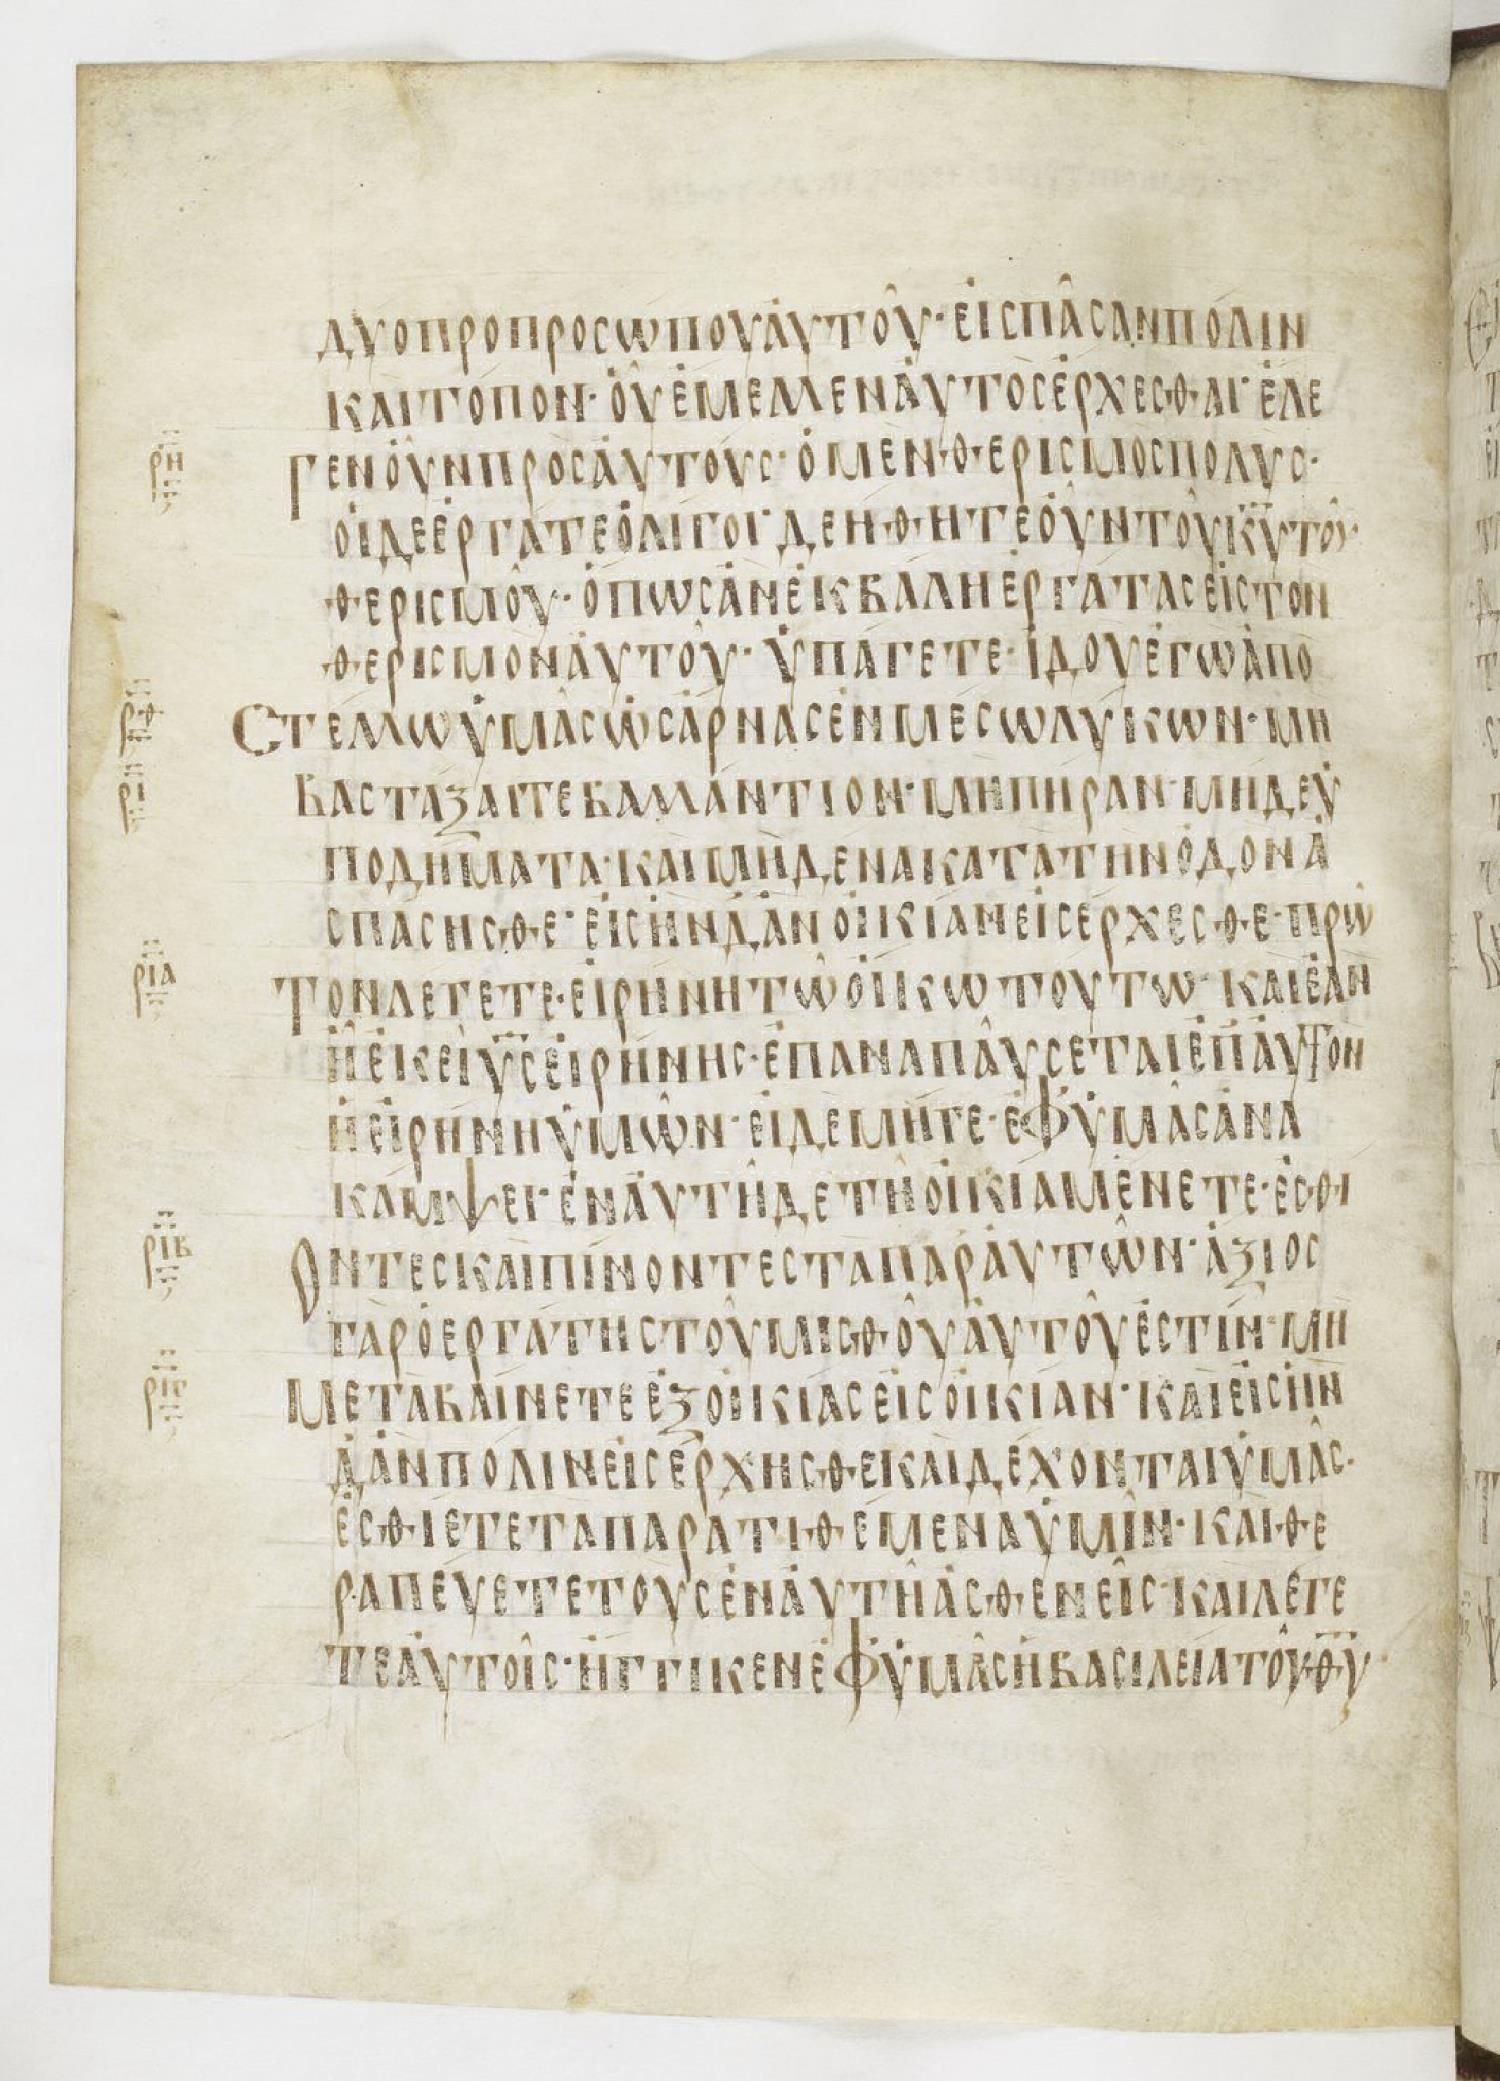 ΔΥΟΠΡΟΠΡΟΣΩΠΟΥἈΥΤΟΥ͂· ἘΙΣΠΑ͂ΣΑΝΠΟΛΙΝ
ΚΑΙΤΟΠΟΝ· ὉΥἘΜΕΛΛΕΝἈΥΤΟΣἘΡΧΕΣΘΑΙ· ἘΛΕ
ΡΗ ΓΕΝὈΥΝΠΡΟΣἈΥΤΟΥΣ· ὉΜΕΝΘΕΡΙΣΜΟΣΠΟΛΥΣ·
ὉΙΔΕἘΡΓΑΤΕὈΛΙΓΟΙ· ΔΕΗΘΗΤΕὈΥΝΤΟΥ͂Κ̅Υ̅ΤΟΥ͂
ΘΕΡΙΣΜΟΥ͂· ὉΠΩΣἈΝἘΚΒΑΛΗἘΡΓΑΤΑΣἘΙΣΤΟΝ
ΘΕΡΙΣΜΟΝἈΥΤΟΥ͂· ὙΠΑΓΕΤΕ· ἸΔΟΥἘΓΩἈΠΟ
ΡΘ ΣΤΕΛΛΩὙΜΑ͂ΣὩΣἈΡΝΑΣἘΝΜΕΣΩΛΥΚΩΝ· ΜΗ
ΡΙ ΒΑΣΤΑΖΑΙΤΕΒΑΛΛΑΝΤΙΟΝ· ΜΗΠΗΡΑΝ· ΜΗΔΕὙ
ΠΟΔΗΜΑΤΑ· ΚΑΙΜΗΔΕΝΑΚΑΤΑΤΗΝὉΔΟΝἈ
ΣΠΑΣΗΣΘΕ· ἘΙΣἩΝΔἈΝὈΙΚΙΑΝἘΙΣΕΡΧΕΣΘΕ· ΠΡΩ͂
ΡΙΑ ΤΟΝΛΕΓΕΤΕ· ἘΙΡΗΝΗΤΩ͂ὈΙΚΩΤΟΥΤΩ· ΚΑΙἘΑΝ
ἨἘΚΕΙΥ̅Σ̅ἘΙΡΗΝΗΣ· ἘΠΑΝΑΠΑΥ͂ΣΕΤΑΙἘΠἈΥΤΟΝ
ἩἘΙΡΗΝΗὙΜΩ͂Ν· ἘΙΔΕΜΗΓΕ· ἘΦὙΜΑ͂ΣἈΝΑ
ΚΑΜΨΕΙ· ἘΝἈΥΤΗ͂ΔΕΤΗ͂ὈΙΚΙΑΜΕΝΕΤΕ· ἘΣΘΙ
ΡΙΒ ΟΝΤΕΣΚΑΙΠΙΝΟΝΤΕΣΤΑΠΑΡἈΥΤΩ͂Ν· ἈΞΙΟΣ
ΓΑΡὉΕΡΓΑΤΗΣΤΟΥ͂ΜΙΣΘΟΥ͂ἈΥΤΟΥ͂ἘΣΤΙΝ· ΜΗ
ΜΕΤΑΒΑΙΝΕΤΕἘΞὈΙΚΙΑΣἘΙΣὈΙΚΙΑΝ· ΚΑΙἘΙΣἩΝ
ΔἈΝΠΟΛΙΝἘΙΣΕΡΧΗΣΘΕΚΑΙΔΕΧΟΝΤΑΙὙΜΑ͂Σ·
ἘΣΘΙΕΤΕΤΑΠΑΡΑΤΙΘΕΜΕΝΑὙΜΙ͂Ν· ΚΑΙΘΕ
ΡΑΠΕΥΕΤΕΤΟΥΣἘΝἈΥΤΗ͂ἈΣΘΕΝΕΙ͂Σ· ΚΑΙΛΕΓΕ
ΤΕἈΥΤΟΙ͂Σ· ἨΓΓΙΚΕΝἘΦὙΜΑ͂ΣἩΒΑΣΙΛΕΙΑΤΟΥ͂Θ̅Υ̅